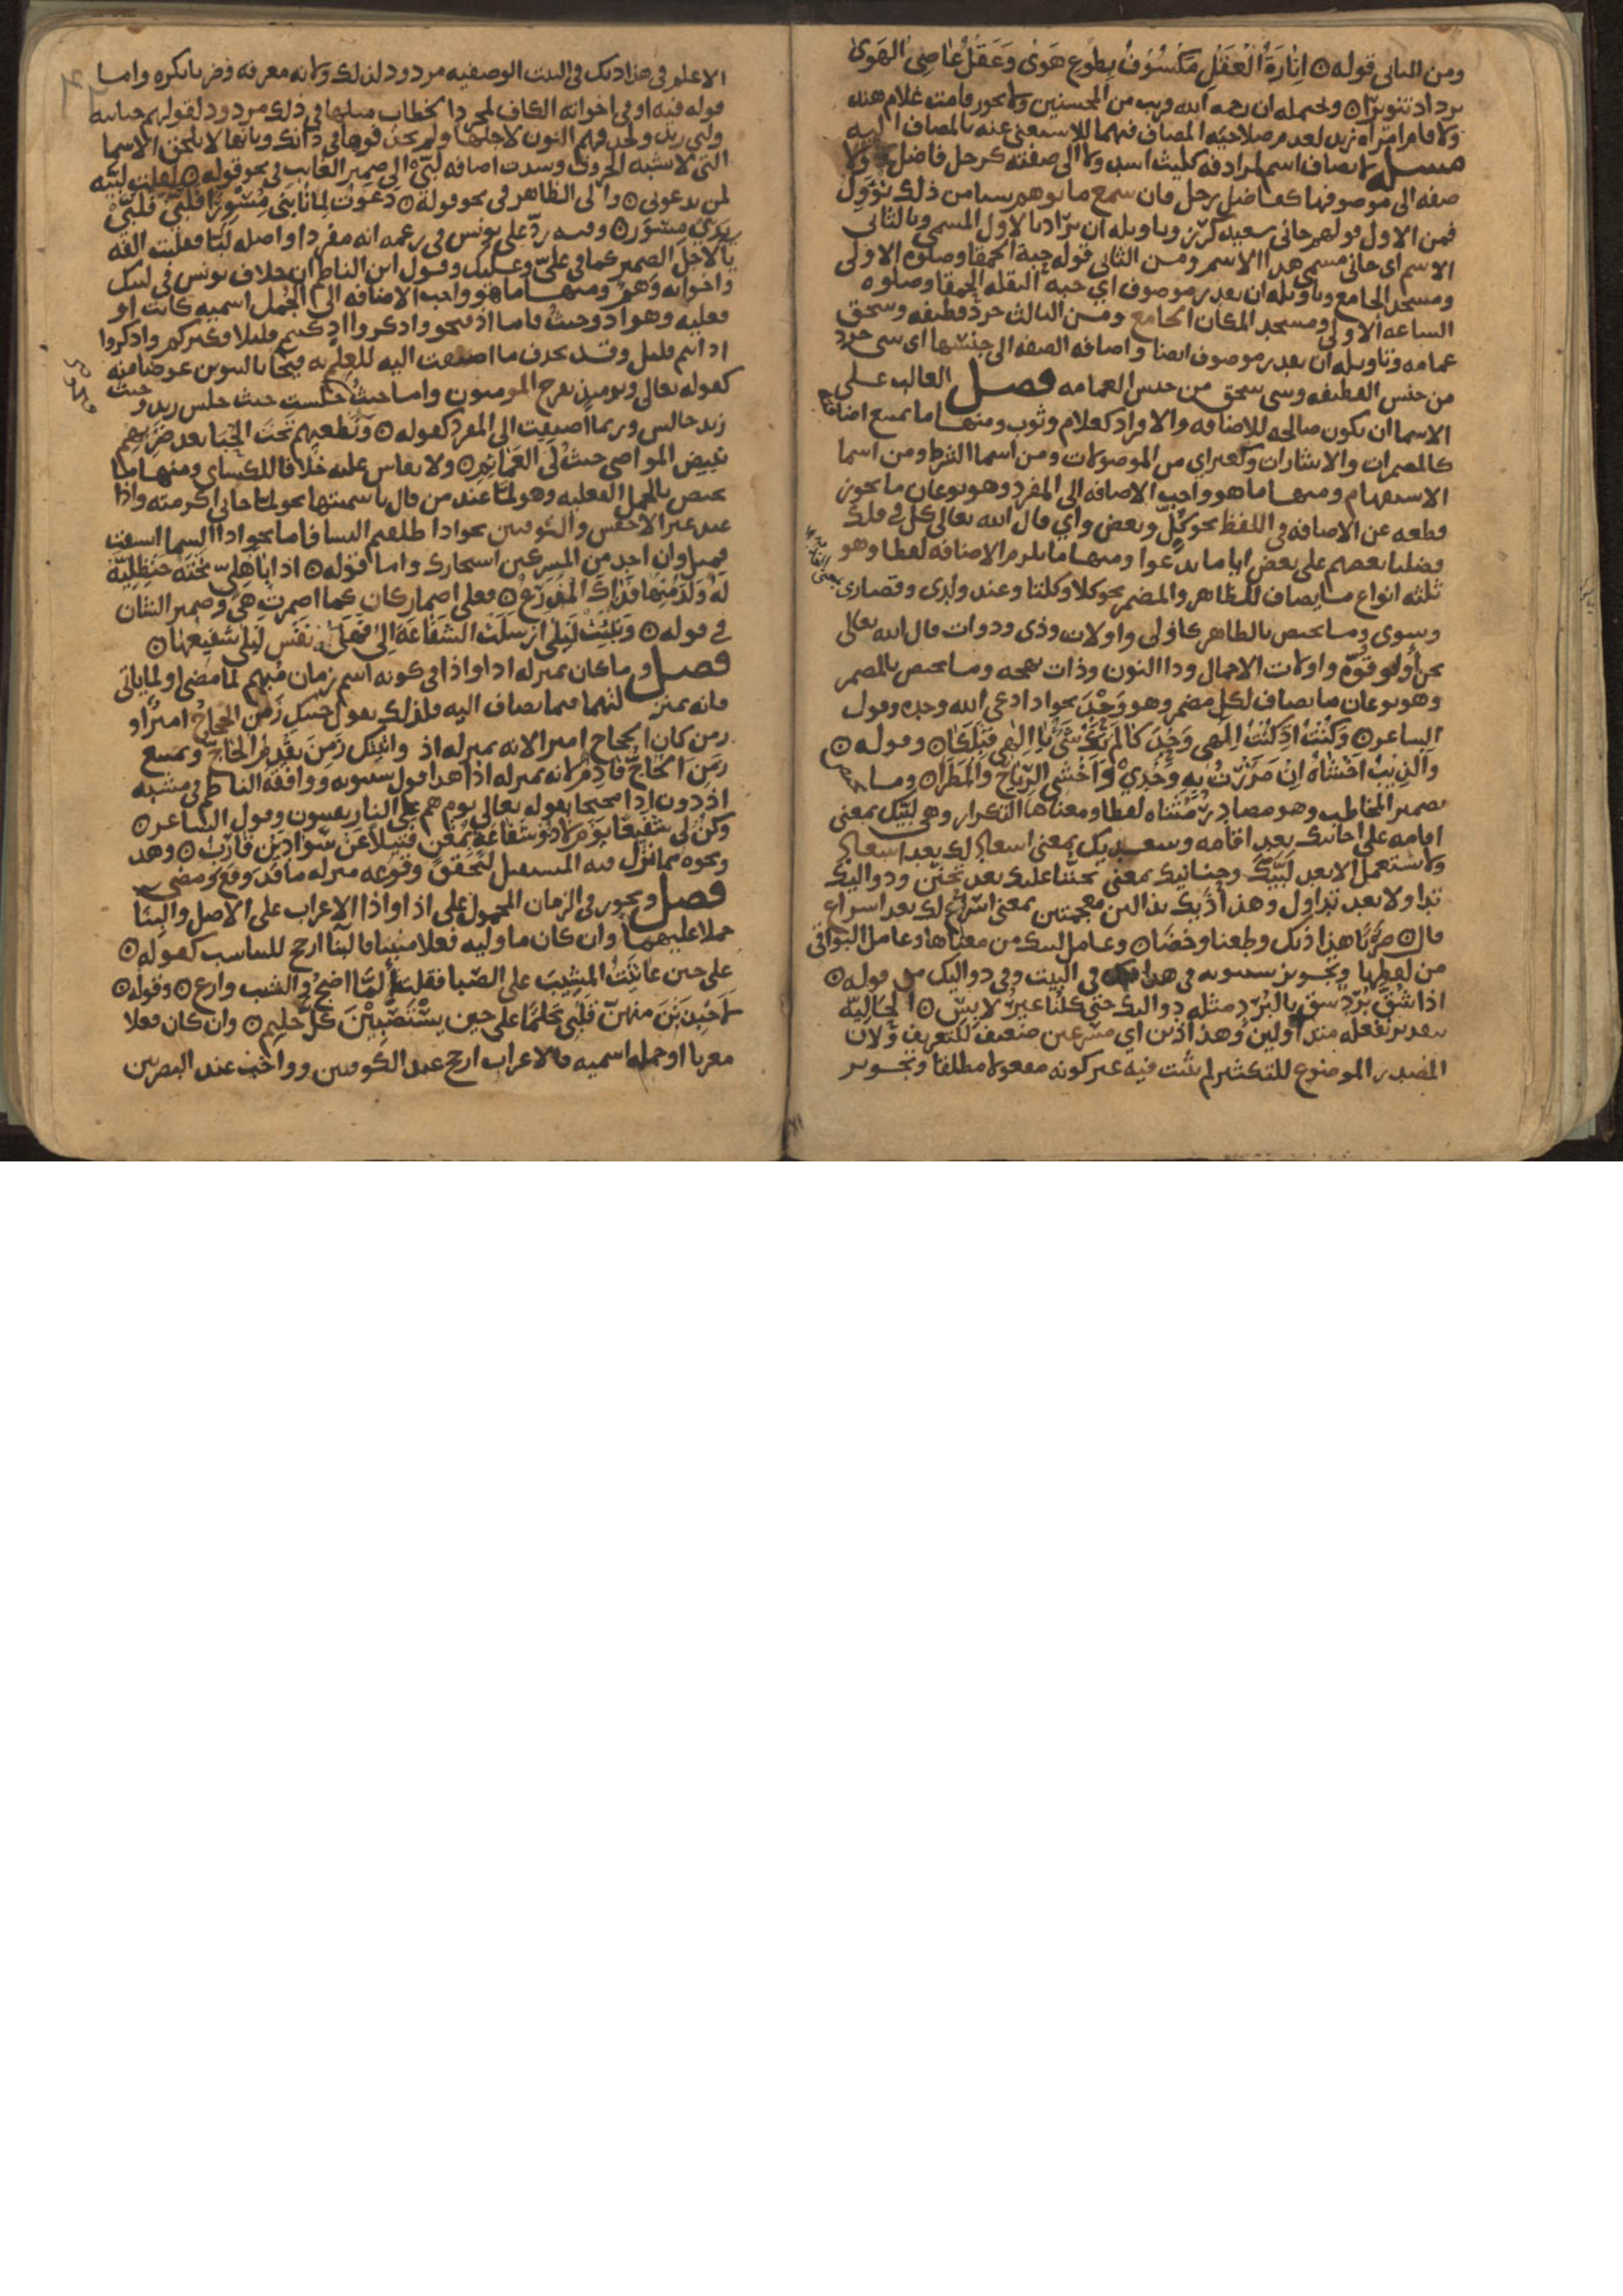 ومن الثاني قوله ۞ اِنَارَةُ الْعَقْلِ مَكْسُوفٌ بِطَوعِ هَوىً وَعَقْلُ عَاصِي الهَوىٰ
يزداد تنويرًا ۞ ويحتمله ان رحمه الله قريب من المحسنين ولا يجوز قامت غلام هند
ولا قام امراه زيد لعدم صلاحيه المضاف فيهما للاستغنى عنه بالمضاف اليه
مسـله لا يضاف اسم لمرادفه كليث اسد ولا الى صفته كرجل فاضل ولا
صفه الى موصوفها كفاضل رجل فان سمع ما يوهم شيا من ذلك يؤول
فمن الاول قولهم جاني سعيد كرز وتاويله ان يراد بالاول المسمى وبالثاني
الاسم اي جاني مسمى هذا الاسم ومن الثاني قولهم حبة الحمقا وصلوه الاولى
ومسجد الجامع وتاويله ان يقدر موصوف اي حبه البقله الحمقا وصلوه
الساعه الاولى ومسجد المكان الجامع ومن الثالث جرد قطيفه وسحق
عمامه وتاويله ان يقدر موصوف ايضا واضافه الصفه الى جنسها اي شي جرد
من جنس القطيفه وشي سحق من جنس العمامه فصل الغالب على
الاسما ان تكون صالحه للاضافه والافراد كغلام وثوب ومنها ما يمتنع اضافته
كالمضمرات والاشارات وكغير اي من الموصولات ومن اسما الشرط ومن اسما
الاستفهام ومنها ما هو واجب الاضافه الى المفرد وهو نوعان ما يجوز
قطعه عن الاضافه في اللفظ نحو كل وبعض واي قال الله تعالى كل في فلك
فضلنا بعضهم على بعض ايا ما تدعوا ومنها ما يلزم الاضافه لفظا وهو
ثلثه انواع ما يضاف للظاهر والمضمر نحو كلا وكلتا وعند ولدى وقصارى
وسوى وما يختص بالظاهر كاولى واولات وذي وذوات قال الله تعالى
نحن أولو قوة واولات الاحمال وذا النون وذات بهجه وما يختص بالمضمر
وهو نوعان ما يضاف لكل مضمر وهو وَحْدَ نحو اذا دعي الله وحده وقول
الشاعر ۞ وَكُنْتَ اِذْ كُنْتَ اِلٰهِي وَحْدَكَا لَمْ يَكُ شَيْءٌ يَا اِلٰهِي قَبْلَكَا ۞ وقوله ۞
والذِيبَ اخْشَاهُ اِنْ مَرَرْتُ بِهِ وَحْدِيْ وَاَخْشَى الرِّيَاحَ وَالْمَطَرَا ۞ وما
لضمير المخاطب وهو مصادر مُثَنّاه لفظا ومعناها التكرار وهي لَبَّيْكَ بمعنى
اقامه على اجابتك بعد اقامه وسعديك بمعنى اسعادا لك بعد اسعاد
ولا تستعمل الا بعد لَبَّيْكَ وحنانيك بمعنى تحننا عليك بعد تحنن ودواليك
تداولا بعد تداول وهذاذيك بذالين معجمتين بمعنى اسراعا لك بعد اسراع
قال ۞ ضربًا هذاذيك وطعنا وخضًا ۞ وعامل لبيك من معناها وعامل البواقي
من لفظها وتجويز سيبويه في هذاذيك في البيت وفي دواليك من قوله ۞
اذا شُقَّ بُرْدٌ شق بالبُرد مثله دواليك حتى كلنا غير لابس ۞ الحاليّة
بتقدير نفعله متداولين وهذاذين اي مسرعين ضعيف للتعريف ولان
المصدر الموضوع للتكثير لم يثبت فيه غير كونه مفعولا مطلقا وتجويز
الاعلم في هذاذيك في البيت الوصفيه مردود لذلك ولانه معرفه وضربا نكره واما
قوله فيه او في اخواته الكاف لمجرد الخطاب مثلها في ذلك مردود لقولهم حنانيه
ولبي زيد ولحذفهم النون لاجلها ولم يحذفوها في ذانك وبانها لا تلحق الاسما
التي لا تشبه الحروف وشذت اضافه لبّيْ الى ضمير الغايب في نحو قوله ۞ لقلت لبّيه
لمن يدعوني ۞ والى الظاهر في نحو قوله ۞ دَعَوْتُ لِمَا نَابَنِي مِسْوَرًا فَلَبَّى فَلَبَّيْ
يَدَيْ مِسْوَر ۞ وفيه ردّ على يونس في زعمه انه مفرد واصله لَبّا فقلبت الفه
يا لاجل الضمير كما في عليّ وعليك وقول ابن الناظم ان خلاف يونس في لبيك
واخواته وَهمٌ ومنهـا ما هو واجب الاضافه الى الجُمل اسميه كانت او
فعليه وهو اذ وحيثُ فاما اذ فنحو واذكروا اذ كنتم قليلا فكثركم واذكروا
اذ انتم قليل وقد يحذف ما اضيفت اليه للعلم به فيجا بالتنوين عوضا منه
كقوله تعالى ويوميذ يفرح المومنون واما حيثُ جلست حيث جلس زيد وحيث
زيد جالس وربما اضيفت الى المفرد كقوله ۞ وَنَطْعَنُهم تَحْتَ الحُبَا بعد ضَرْبِهِم
ببيض المواضي حيثُ لَيّ العَمَائِم ۞ ولا يقاس عليه خلافا للكساي ومنهـا ما
يختص بالجمل الفعليه وهو لمّا عند من قال باسميتها نحو لما جاني اكرمته واذا
عند غير الاخفش والكوفيين نحو اذا طلقتم النسا فاما نحو اذا السما انشقت
فمثل وان احد من المشركين استجارك واما قوله ۞ اذا بَاهِليّ تَحْتَه حَنْظَلِيَّة
لَهُ وَلَدٌ مِنْهَا فَذَاكَ الْمُذَرَّعُ ۞ فعلى اضمار كان كما اضمرت هي وضمير الشان
في قوله ۞ وَنُبِّئْتُ لَيْلى اَرْسَلَتْ بشَفَاعَةٍ اِليَّ فَهَلَّا نَفْسُ لَيْلى شَفِيعُهَا ۞
فصل وما كان بمنزله اذ او اذا في كونه اسم زمان مُبهم لما مضى او لما ياتي
فانه بمنزلتهما فيما يضاف اليه فلذلك تقول جيتك زَمَنَ الحَجاجُ اميرٌ او
زمن كان الحجاج اميرا لانه بمنزله اذ واتيتك زَمنَ يقدمُ الحاجّ ويمتنع
زَمَنَ الحَاجُّ قَادِمٌ لانه بمنزله اذا هذا قول سيبويه ووافقه الناظم في مشبه
اذ دون اذا محتجا بقوله تعالى يوم هم على النار يفتنون وقول الشاعر ۞
وكُنْ لِي شَفِيعًا يَوْمَ لَا ذُو شَفَاعَةٍ بِمُغْنٍ فَتِيلًا عَنْ سَوَادِ بْنِ قَارِبِ ۞ وهذا
ونحوه مما نُزِّل فيه المستقبل لتحقق وقوعه منزله ما قد وقع ومضى
فصل ويجوز في الزمان المحمول على اذ او اذا الاعراب على الاصل والبِنا
حملا عليهما وان كان ما وليه فعلا مبنيا فالبنا ارجح للتناسب كقوله ۞
على حين عاتَبْتُ المَشِيبَ على الصِّبا فقلت ألمّا اصْحُ والشيب وازع ۞ وقوله ۞
لَاجْتَذِبَنْ منهنّ قَلْبِي تحلّمًا على حين يَسْتَصْبِيْنَ كلَّ حَلِيمِ ۞ وان كان فعلا
معربا او جمله اسميه فالاعراب ارجح عند الكوفيين وواجب عند البصريين